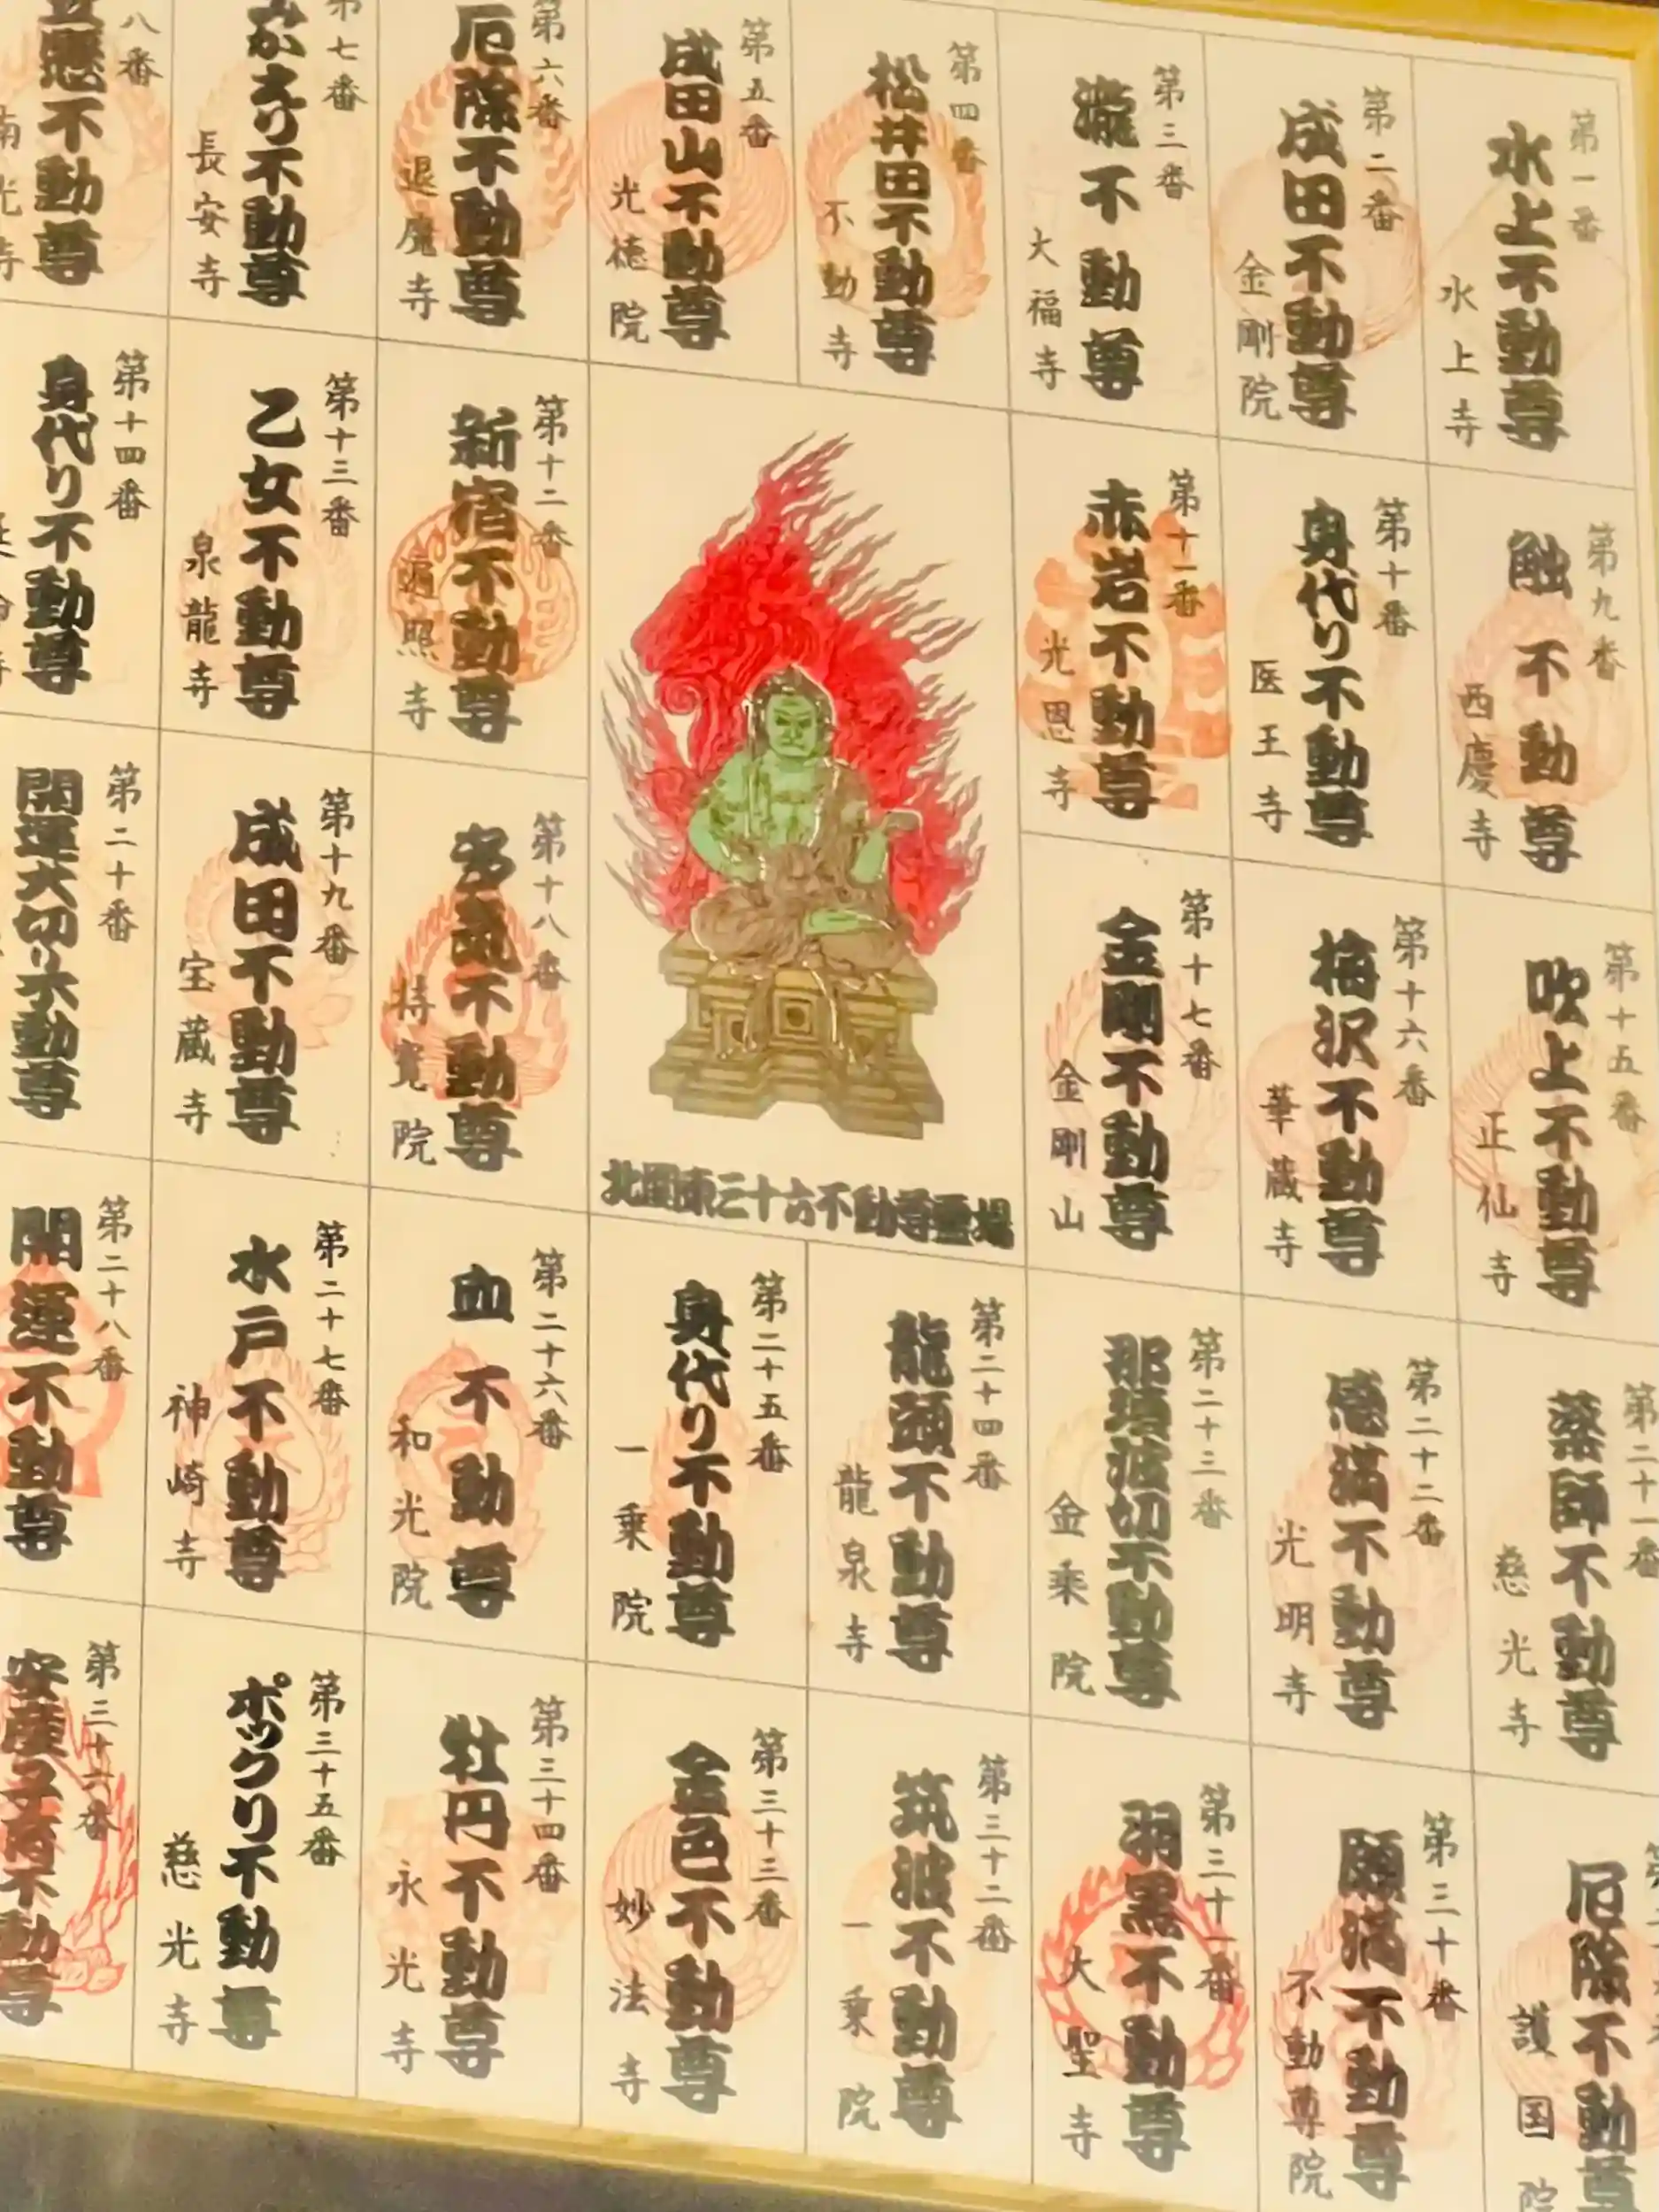 第一番
水上不動尊
水上寺
第二番
成田不動尊
金剛院
第三番
瀧不動尊
大福寺
第四番
松井田不動尊
不動寺
第五番
成田山不動尊
光徳院
第六番
厄除不動尊
退魔寺
第七番
不動尊
長安寺
八番
不動尊
光寺
第九番
触不動尊
西慶寺
第十番
身代り不動尊
医王寺
第十一番
赤岩不動尊
光恩寺
第十二番
新宿不動尊
遍照寺
第十三番
乙女不動尊
泉龍寺
第十四番
身代り不動尊
第十五番
吹上不動尊
正仙寺
第十六番
梅沢不動尊
華蔵寺
第十七番
金剛不動尊
金剛山
第十八番
多気不動尊
持寳院
第十九番
成田不動尊
宝蔵寺
第二十番
開運大切り不動尊
北関東三十六不動尊霊場
第二十一番
薬師不動尊
慈光寺
第二十二番
感満不動尊
光明寺
第二十三番
那須波切不動尊
金乗院
第二十四番
龍頭不動尊
龍泉寺
第二十五番
身代り不動尊
一乗院
第二十六番
血不動尊
和光院
第二十七番
水戸不動尊
神崎寺
第二十八番
開運不動尊
厄除不動尊
護国院
第三十番
願満不動尊
不動尊院
第三十一番
羽黒不動尊
大聖寺
第三十二番
筑波不動尊
一乗院
第三十三番
金色不動尊
妙法寺
第三十四番
牡円不動尊
永光寺
第三十五番
ポックリ不動尊
慈光寺
第三十六番
安産子育不動尊